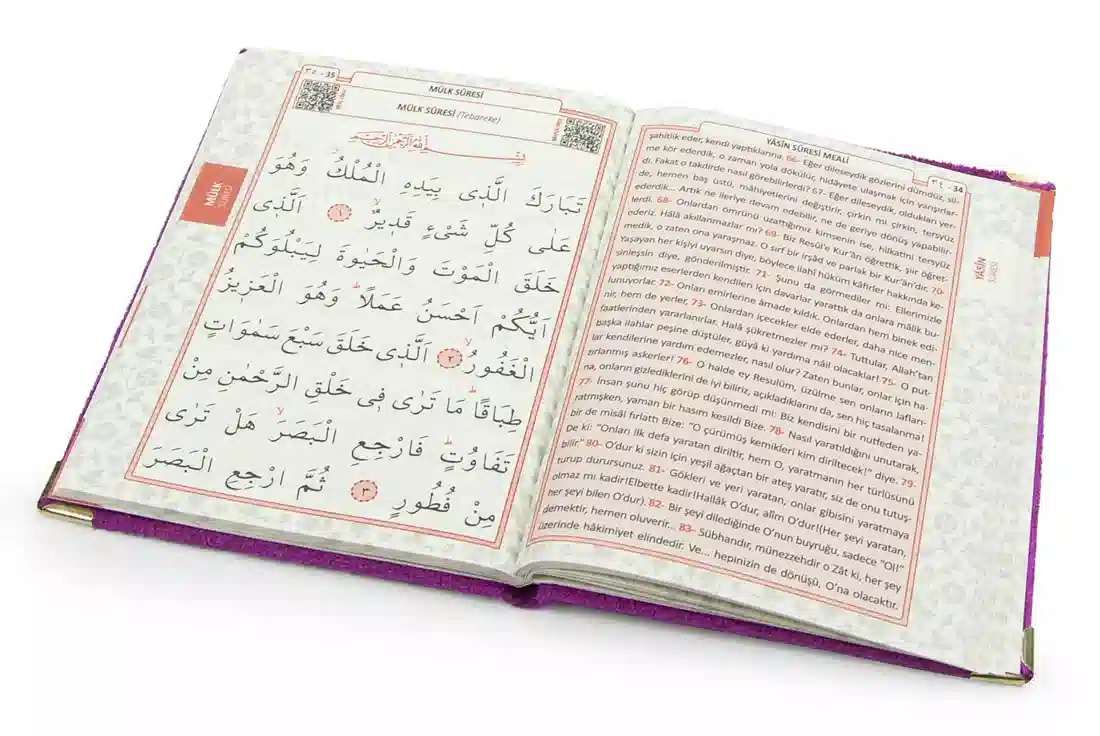 YÂSİN SÛRESİ MEALİ
٣٤ - 34
şahitlik eder, kendi yaptıklarına. 66- Eğer dileseydik gözlerini dümdüz, sil-
me kör ederdik, o zaman yola dökülür, hidâyete ulaşmak için yarışırlar-
dı. Fakat o takdirde nasıl görebilirlerdi? 67- Eğer dileseydik, oldukları yer-
de, hemen baş üstü, mâhiyetlerini değiştirir, çirkin mi çirkin, tersyüz
ederdik... Artık ne ileriye devam edebilir, ne de geriye dönüş yapabilir-
lerdi. 68- Onlardan ömrünü uzattığımız kimsenin ise, hilkatini tersyüz
ederiz. Hâlâ akıllanmazlar mı? 69- Biz Resûl'e Kur'ân öğrettik, şiir öğret-
medik, o zaten ona yaraşmaz. O sırf bir irşâd ve parlak bir Kur'ân'dır. 70-
Yaşayan her kişiyi uyarsın diye, böylece ilahî hüküm kâfirler hakkında ke-
sinleşsin diye, gönderilmiştir. 71- Şunu da görmediler mi: Ellerimizle
yaptığımız eserlerden kendileri için davarlar yarattık da onlara mâlik bu-
lunuyorlar. 72- Onları emirlerine âmade kıldık. Onlardan hem binek edi-
nir, hem de yerler. 73- Onlardan içecekler elde ederler, daha nice men-
faatlerinden yararlanırlar. Halâ şükretmezler mi? 74- Tuttular, Allah'tan
başka ilahlar peşine düştüler, gûyâ ki yardıma nâil olacaklar! 75- O put-
lar kendilerine yardım edemezler, nasıl olur? Zaten bunlar, onlar için ha-
zırlanmış askerler! 76- O halde ey Resulüm, üzülme sen onların lafları-
na, onların gizlediklerini de iyi biliriz, açıkladıklarını da, sen hiç tasalanma!
77- İnsan şunu hiç görüp düşünmedi mi: Biz kendisini bir nutfeden ya-
ratmışken, yaman bir hasım kesildi Bize. 78- Nasıl yaratıldığını unutarak,
bir de misâl fırlattı Bize: "O çürümüş kemikleri kim diriltecek!" diye. 79-
De ki: "Onları ilk defa yaratan diriltir, hem O, yaratmanın her türlüsünü
bilir." 80- O'dur ki sizin için yeşil ağaçtan bir ateş yaratır, siz de onu tutuş-
turup durursunuz. 81- Gökleri ve yeri yaratan, onlar gibisini yaratmaya
olmaz mı kadir!Elbette kadir!Hallâk O'dur, alîm O'dur!(Her şeyi yaratan,
her şeyi bilen O'dur). 82- Bir şeyi dilediğinde O'nun buyruğu, sadece "Ol!"
demektir, hemen oluverir... 83- Sübhandır, münezzehdir o Zât ki, her şey
üzerinde hâkimiyet elindedir. Ve... hepinizin de dönüşü, O'na olacaktır.
YÂSİN
SÛRESİ
٣٥ - 35
MÜLK SÛRESİ
MÜLK SÛRESİ (Tebareke)
بِسْمِ اللّٰهِ الرَّحْمٰنِ الرَّحِيمِ
تَبَارَكَ الَّذٖى بِيَدِهِ الْمُلْكُ وَهُوَ
عَلٰى كُلِّ شَیْءٍ قَدٖيرٌ ﴿١﴾ اَلَّذٖى
خَلَقَ الْمَوْتَ وَالْحَيٰوةَ لِيَبْلُوَكُمْ
اَيُّكُمْ اَحْسَنُ عَمَلًا وَهُوَ الْعَزٖيزُ
الْغَفُورُ ﴿٢﴾ اَلَّذٖى خَلَقَ سَبْعَ سَمٰوَاتٍ
طِبَاقًا مَا تَرٰى فٖى خَلْقِ الرَّحْمٰنِ مِنْ
تَفَاوُتٍ فَارْجِعِ الْبَصَرَ هَلْ تَرٰى
مِنْ فُطُورٍ ﴿٣﴾ ثُمَّ ارْجِعِ الْبَصَرَ
MÜLK
SÛRESİ